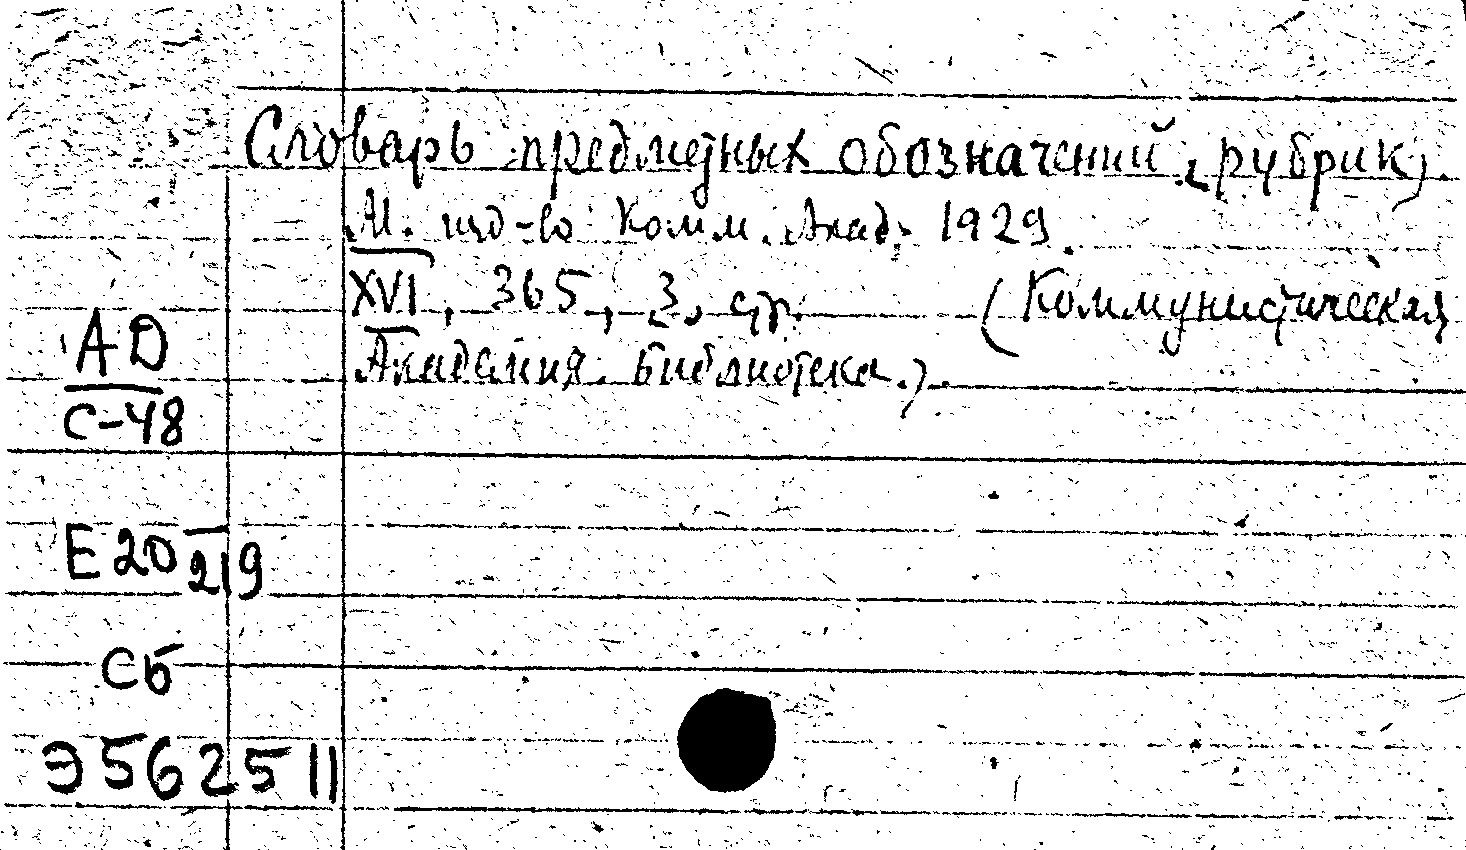 Словарь предметных обозначений (рубрик).
М. изд-во Комм. Акад. 1929.
XVI, 365, 3, стр. (Коммунистическая
Академия. Библиотека.).
АД
С-48
Е20 219
Сб
Э562511